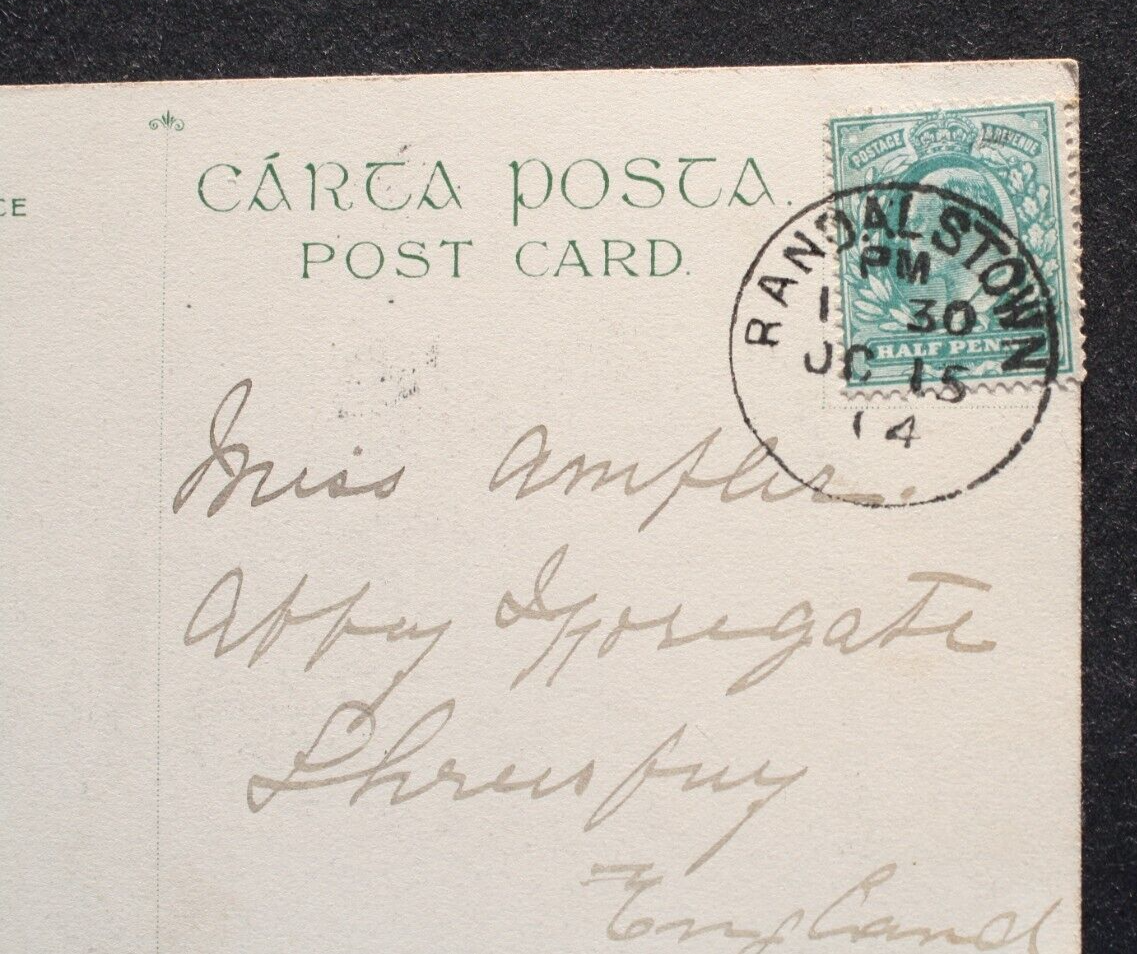 CE
CÁRTA POSTA.
POST CARD.
POSTAGE & REVENUE
HALF PENNY
RANDALSTOWN
PM
1 30
OC 15
14
Miss Ambler.
Abbey Foregate
Shrewsbury
England